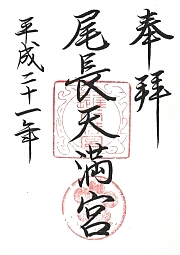 奉拝
尾長天満宮
平成二十一年